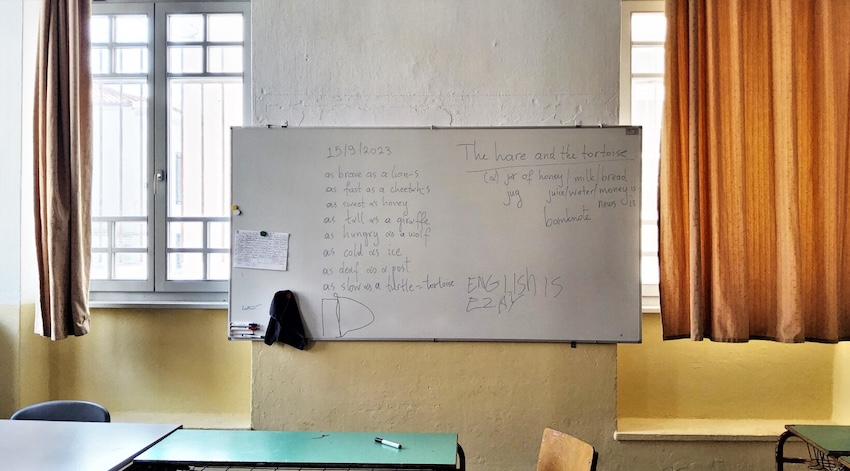 15/9/2023
as brave as a lion-s
as fast as a cheetah-s
as sweet as honey
as tall as a giraffe
as hungry as a wolf
as cold as ice
as deaf as a post
as slow as a turtle = tortoise
The hare and the tortoise
(a) jar of honey / milk / bread
jug juice/water/money is
news is
banknote
ENGLISH IS
EZAY